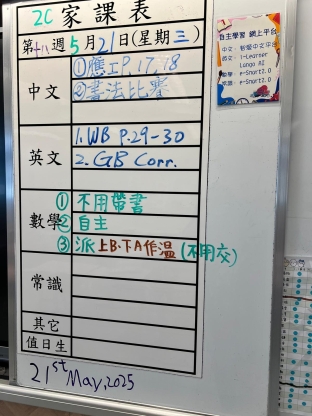 2C 家課表
第十八週5月21日(星期三)
中文
①應工P.17,18
②書法比賽
英文
1. WB P.29-30
2. GB Corr.
數學
① 不用帶書
② 自主
③ 派上B.下A作溫(不用交)
常識
其它
值日生
21st May, 2025
自主學習 網上平台
i-Learner
e-Smart2.0
e-Smart2.0